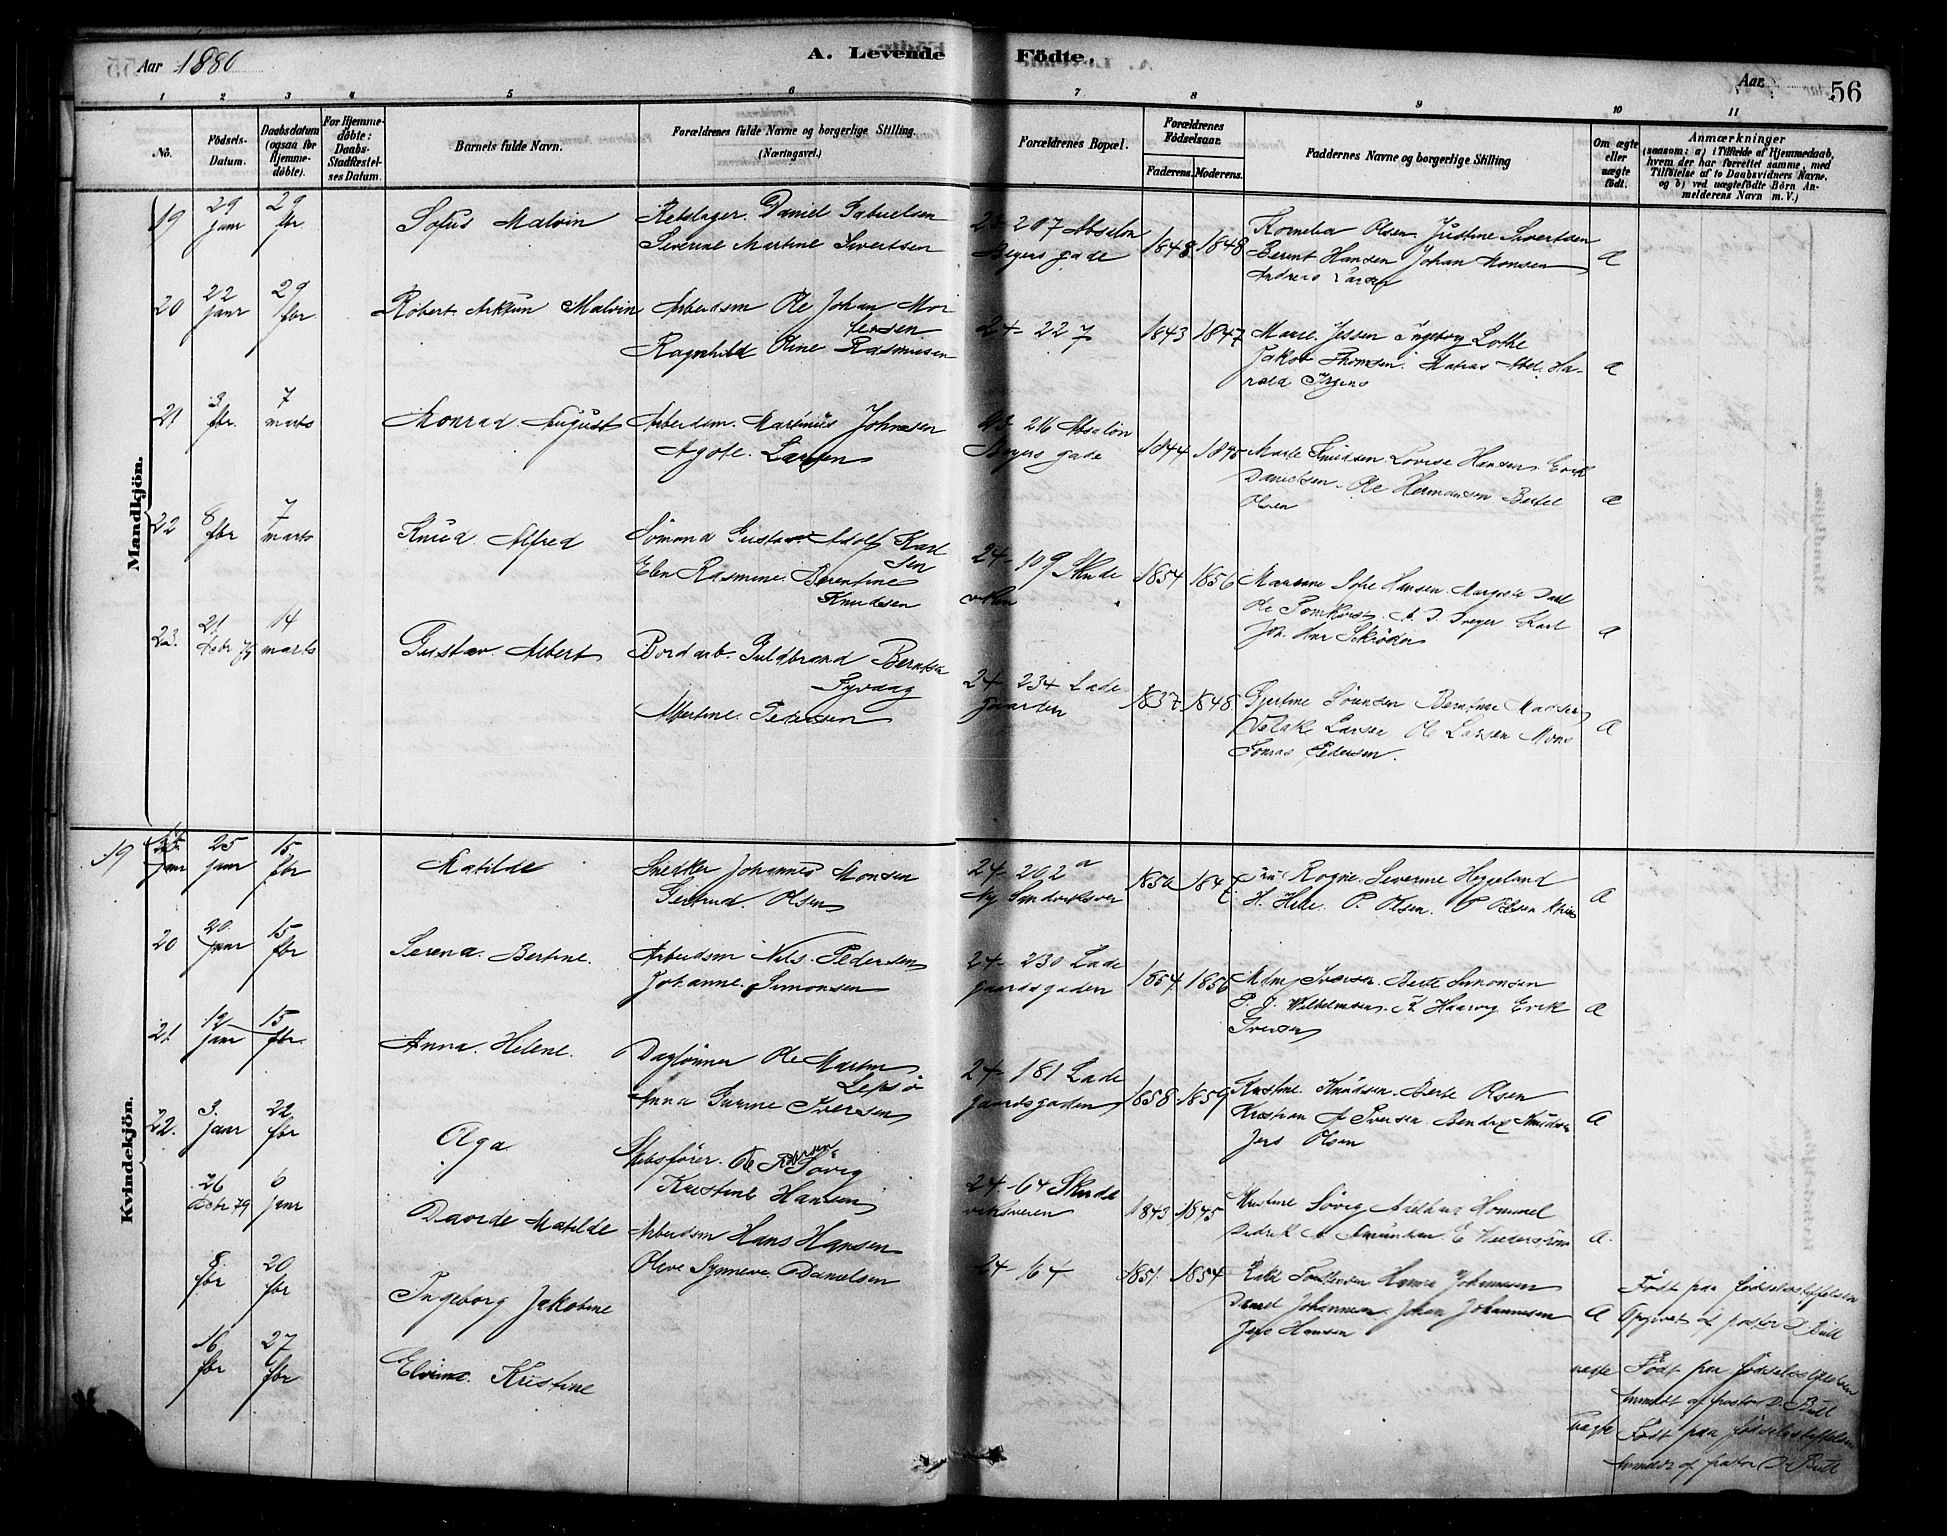 Aar 1880
A. Levende Födte.
Aar
56
1 2 3 4 5 6 7 8 9 10 11
No.
Födsels-Datum.
Daabsdatum (ogsaa for Hjemme-döbte).
For Hjemme-döbte: Daabs-Stadfæstel-ses Datum.
Barnets fulde Navn.
Forældrenes fulde Navne og borgerlige Stilling.
(Næringsvei.)
Forældrenes Bopæl.
Forældrenes Födselsaar.
Faderens. Moderens.
Faddernes Navne og borgerlige Stilling
Om ægte eller uægte födt.
Anmærkninger
(saasom: a) i Tilfælde af Hjemmedaab, hvem der har forrettet samme, med Tilföielse af to Daabsvidners Navne, og b) ved uægtefödte Börn An-melderens Navn m. V.)
Mandkjön.
19 29 janr 29 fbr Sofus Malvin Rebslager Daniel Gabrielsen
Severine Martine Sivertsen
207 Absalon Beyers gade 1848 1848
Kornelia Olsen Justine Sivertsen
Berent Hansen Johan Monsen
Andreas Larsen
Æ
20 22 janr 29 fbr Robert Malvin Arbeidsm Ole Johan
Ragnhild Oline Rasmusen
24-227 1843 1847
Marie Jessen Ingeborg Lothe
Jakob Thomsen Matias Abel Ha-
rald Irgens
Æ
21 3 fbr. 7 marts Konrad August Arbeidsm. Martinus Johnsen
Agote. Larsen
216 Absalon Beyers gade 1844 1845
Marte Knudsen Lovise Hansen Erik
Danielsen Ole Hermansen Bertel
Olsen
Æ
22 8 fbr 7 marts Knud Alfred Sömand Gustav Adolf Karl
sen
Elen Rasmine Berentine
Knudsen
24-109 Skude
viken 1854 1856
Sofie Hansen Margrete Dahl
Ole
Joh. Skröder
Æ
23. 21 Debr 79 14 marts Gustav Albert Bordarb. Guldbrand Berntsen
Albertine Pedersen
24-234 Lade
gaarden 1837 1848
Gjertine Sörensen Berntine Madsen
Larsen Ole Larsen Mons
Tomas Pedersen.
Æ
Kvindekjön.
19 25 janr 15 fbr Matilde Snedker Johannes Monsen
Gertrud Olsen
24-202 a
Ny Sandviksvei 1850 1847
Rogne Severine Heggeland
H. Helle P. Olsen
Æ
20 20 janr 15 fbr Serena Bertine. Arbeidsm Nils Pedersen
Johanne Simonsen
24-230 Lade
gaardsgaden 1854 1856
Iversen Berte Simonsen
P. J. Wilhelmsen Erik
Iversen
Æ
21 12 janr 15 fbr. Anna Helene. Daglönner Ole Martin
Lepsö
Anna Gurine Iversen
24-181 Lade
gaardsgaden 1858 1859
Kristine Knudsen Berte Olsen
Kristian A Iversen Bendix Knudsen
Jens Olsen
Æ
22. 3. janr 22 fbr Olga Skibsförer. Ole Pedersen Sövig
Kristine Hansen
24-64 Skude
viksveien 1843 1845
Kristine Sövig Hommel
Didrik A
Æ
26 Debr 79 6 janr Davide Matilde Arbeidsm Hans Hansen
Oleve Synneve Danielsen
24-164 1851 1854
Hanna Johannesen
Daniel Johannesen Johan Johannesen
Jens Hansen
Æ
Födt paa födselsstiftelsen
Opgivet af pastor D. Bull
8 fbr 20 fbr Ingeborg Jakobine
uægte Födt paa födselsstiftelsen
anmeldt af pastor D. Bull
16 fbr 27 fbr Elvina Kristine
uægte Födt paa födselsstiftelsen
anmeldt af pastor D. Bull